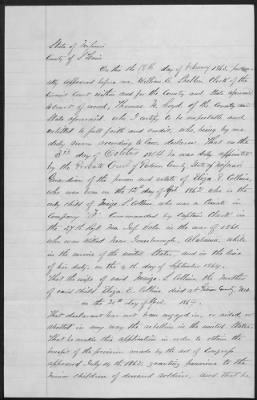 State of Missouri
County of St Louis
On this the 18th day of February 1865, personally
appeared before me, William C. Clerk of the
Circuit Court within and for the County and State aforesaid
a Court of record, Thomas N. Boyd, of the County and
State aforesaid who I certify to be respectable and
entitled to full faith and credit, who being by me
duly sworn according to law, declares That on the
3rd day of October 1864 he was duly appointed
by the Probate Court of County State of Missouri
Guardian of the person and estate of Eliza E. Collins,
who was born on the 12th day of April 1862 who is the
only child of S. Collins who was a Private in
Company "F" Commanded by Captain Clark in
the 29th Regt Mo. Inf. Vols in the war of 1861
who was killed near Alabama, while
in the service of the United States, and in the line
of his duty, on the day of September 1864.
That the wife of said S. Collins, the mother
of said child Eliza E. Collins died at County, Mo.
on the 20th day of April 1864.
That declarant has not been engaged in, or aided, or
abetted in any way the rebellion in the United States.
That he makes this application in order to obtain the
benefit of the provision made by the act of Congress
approved July 14th 1862, granting pensions to the
minor children of deceased soldiers, and that he